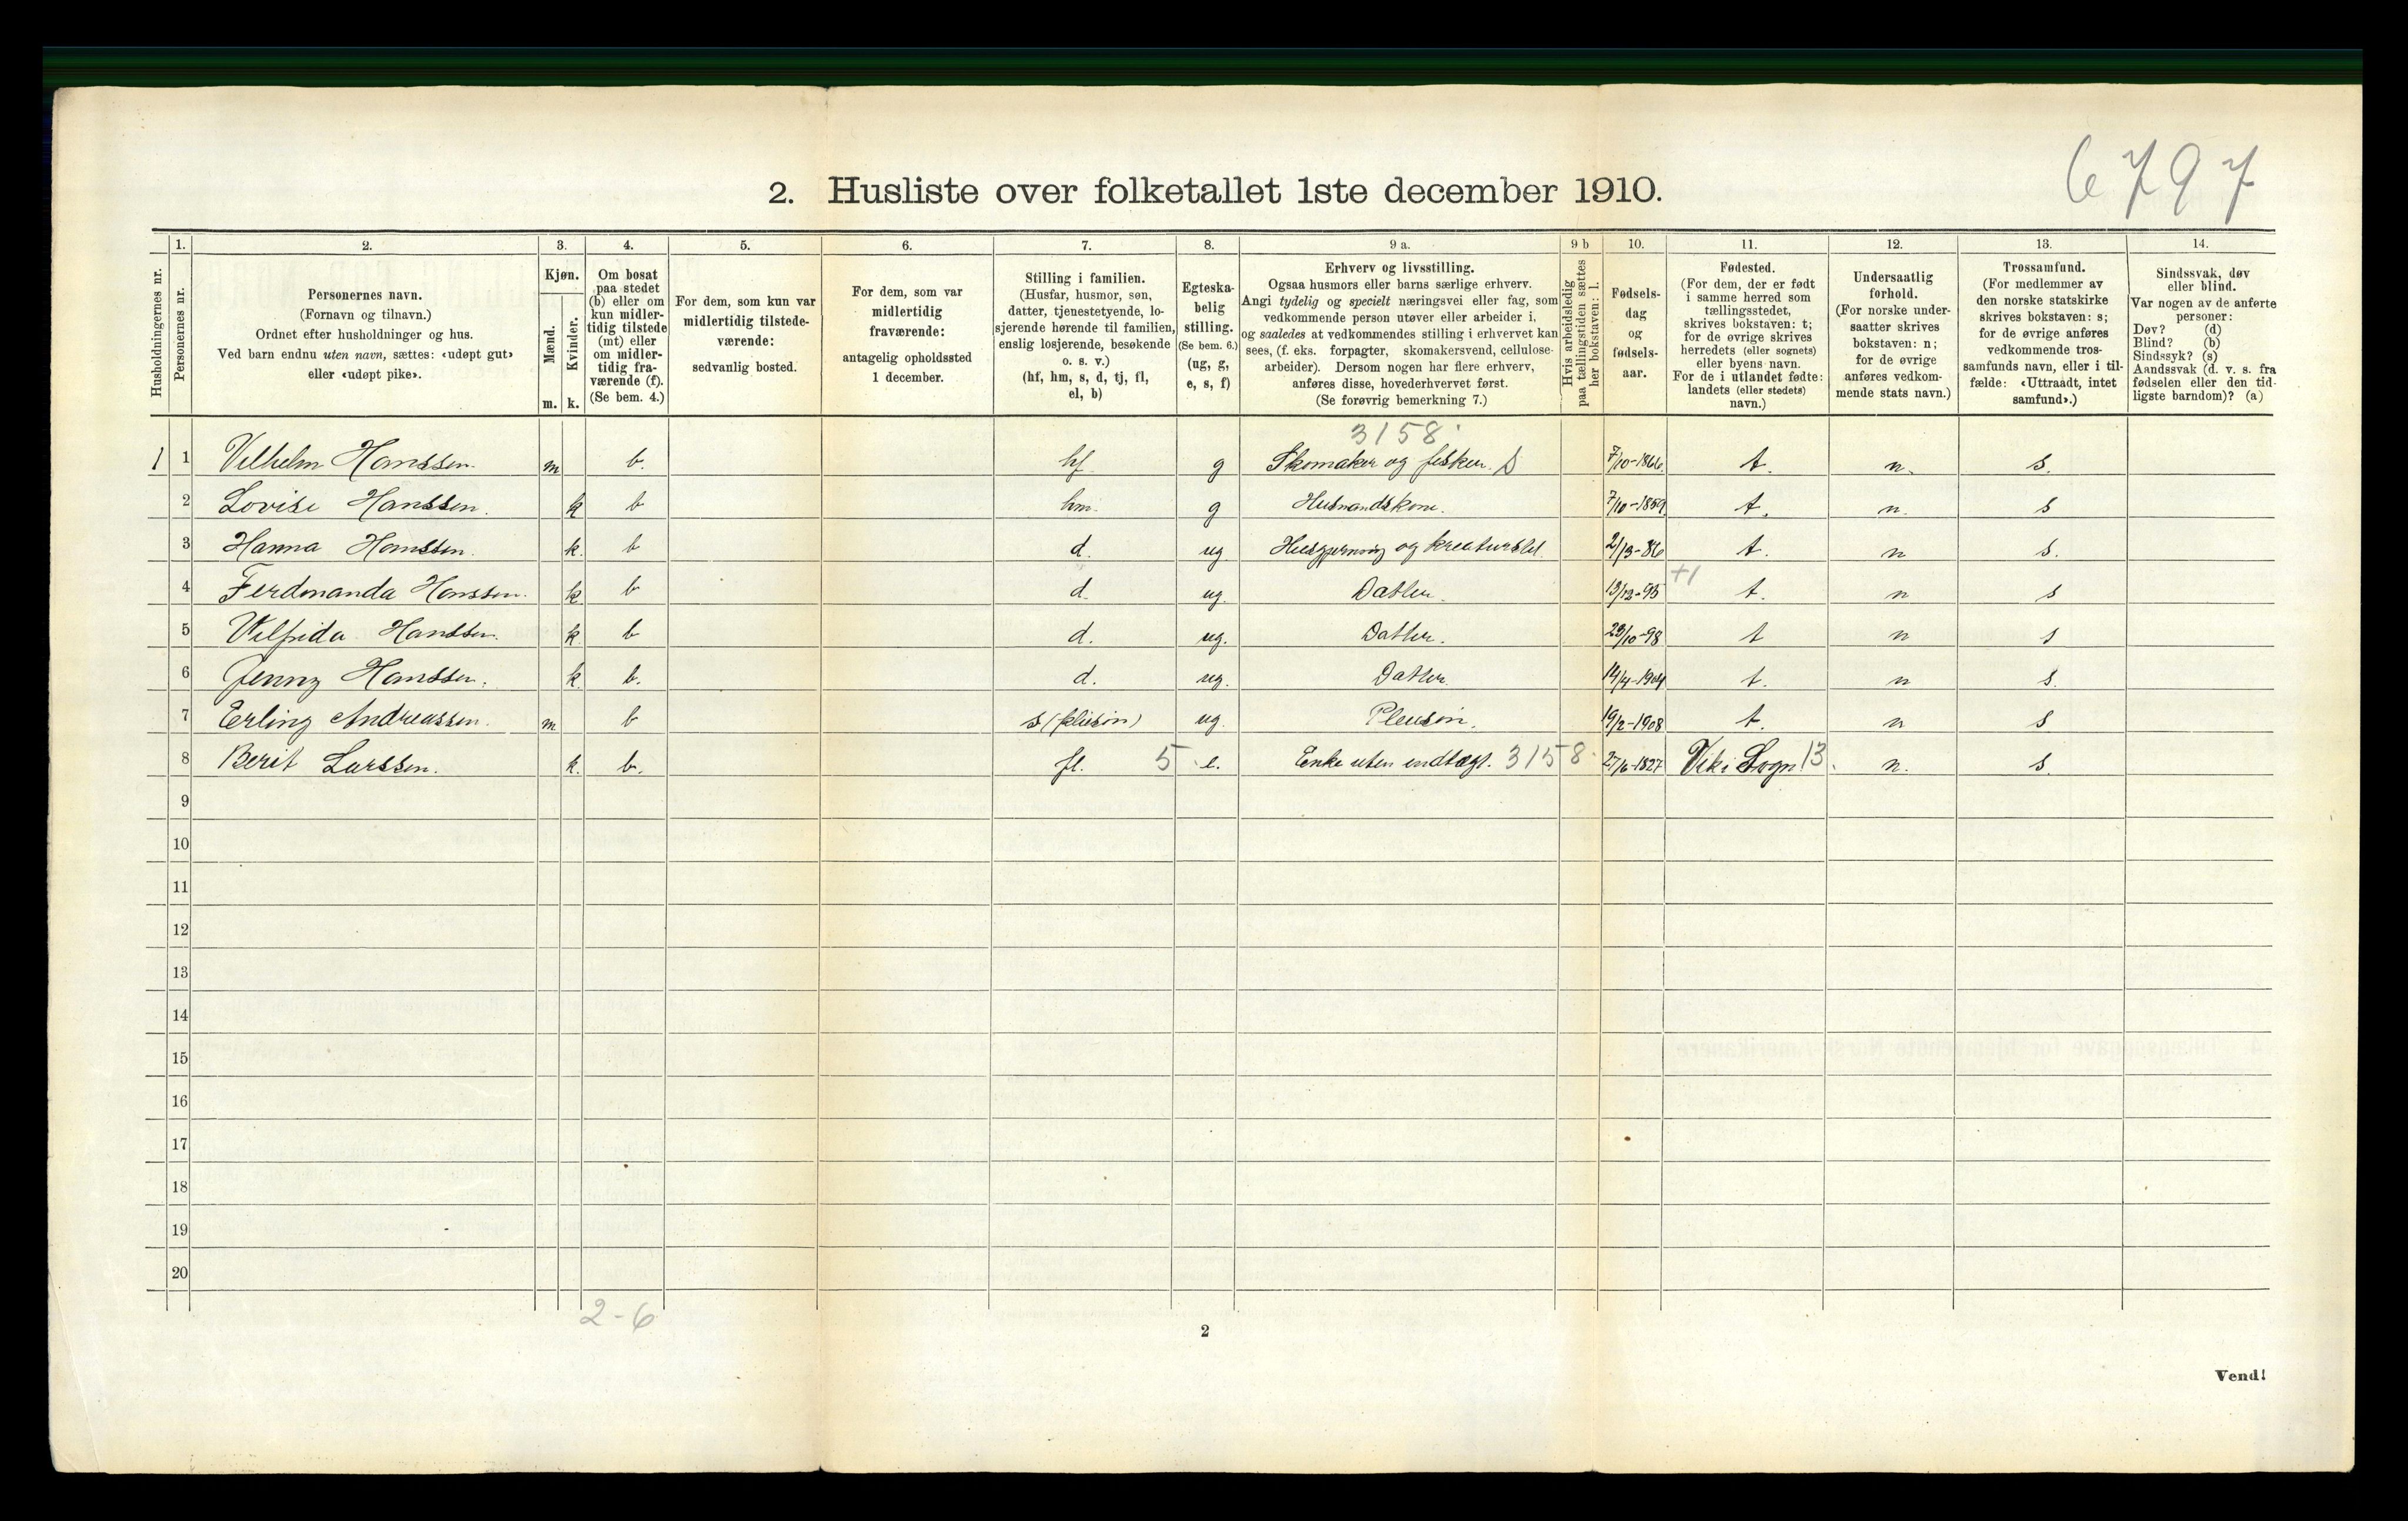 6797
2. Husliste over folketallet 1ste december 1910.
1. 2. 3. 4. 5. 6. 7. 8. 9 a. 9 b 10. 11. 12. 13. 14.
Husholdningernes nr.
Personernes nr.
Personernes navn.
(Fornavn og tilnavn.)
Ordnet efter husholdninger og hus.
Ved barn endnu uten navn, sættes: «udøpt gut»
eller «udøpt pike».
Kjøn.
Mænd.
Kvinder.
m. k.
Om bosat
paa stedet
(b) eller om
kun midler-
tidig tilstede
(mt) eller
om midler-
tidig fra-
værende (f).
(Se bem. 4.)
For dem, som kun var
midlertidig tilstede-
værende:
sedvanlig bosted.
For dem, som var
midlertidig
fraværende:
antagelig opholdssted
1 december.
Stilling i familien.
(Husfar, husmor, søn,
datter, tjenestetyende, lo-
sjerende hørende til familien,
enslig losjerende, besøkende
o. s. v.)
(hf, hm, s, d, tj, fl,
el, b)
Egteska-
belig
stilling.
(Se bem. 6.)
(ug, g,
e, s, f)
Erhverv og livsstilling.
Ogsaa husmors eller barns særlige erhverv.
Angi tydelig og specielt næringsvei eller fag, som
vedkommende person utøver eller arbeider i,
og saaledes at vedkommendes stilling i erhvervet kan
sees, (f. eks. forpagter, skomakersvend, cellulose-
arbeider). Dersom nogen har flere erhverv,
anføres disse, hovederhvervet først.
(Se forøvrig bemerkning 7.)
Hvis arbeidsledig
paa tællingstiden sættes
her bokstaven: l.
Fødsels-
dag
og
fødsels-
aar.
Fødested.
(For dem, der er født
i samme herred som
tællingsstedet,
skrives bokstaven: t;
for de øvrige skrives
herredets (eller sognets)
eller byens navn.
For de i utlandet fødte:
landets (eller stedets)
navn.)
Undersaatlig
forhold.
(For norske under-
saatter skrives
bokstaven: n;
for de øvrige
anføres vedkom-
mende stats navn.)
Trossamfund.
(For medlemmer av
den norske statskirke
skrives bokstaven: s;
for de øvrige anføres
vedkommende tros-
samfunds navn, eller i til-
fælde: «Uttraadt, intet
samfund».)
Sindssvak, døv
eller blind.
Var nogen av de anførte
personer:
Døv? (d)
Blind? (b)
Sindssyk? (s)
Aandssvak (d. v. s. fra
fødselen eller den tid-
ligste barndom)? (a)
3158
1 1 Vilhelm Hanssen. m b. hf g Skomaker og fisker. 7/10-1866. t. n. s.
2 Lovise Hanssen. k b hm. g Husmandskone. 7/10-1859 t. n. s
3 Hanna Hanssen. k. b d. ug Husgjerning og kreaturstel. t. n s.
4 Ferdinanda Hanssen. k. b d. ug. Datter. 13/12-95 +1 t. n s
5 Vilfrida Hanssen. k. b d. ug. Datter. 28/10-98 t n s
6 Jenny Hanssen. k. b. d. ug. Datter. 14/4-1904 t. n s.
7 Erling Andreassen. m b s (pleiesøn) ug. Pleiesøn. 19/2-1908 t. n s
8 Berit Larssen. k. b. fl. 5 e. Enke uten indtægt. 3158 27/6-1827 Vik i Sogn 13. n. s.
9
10
11
12
13
14
15
16
17
18
19
20
2-6
2
Vend!